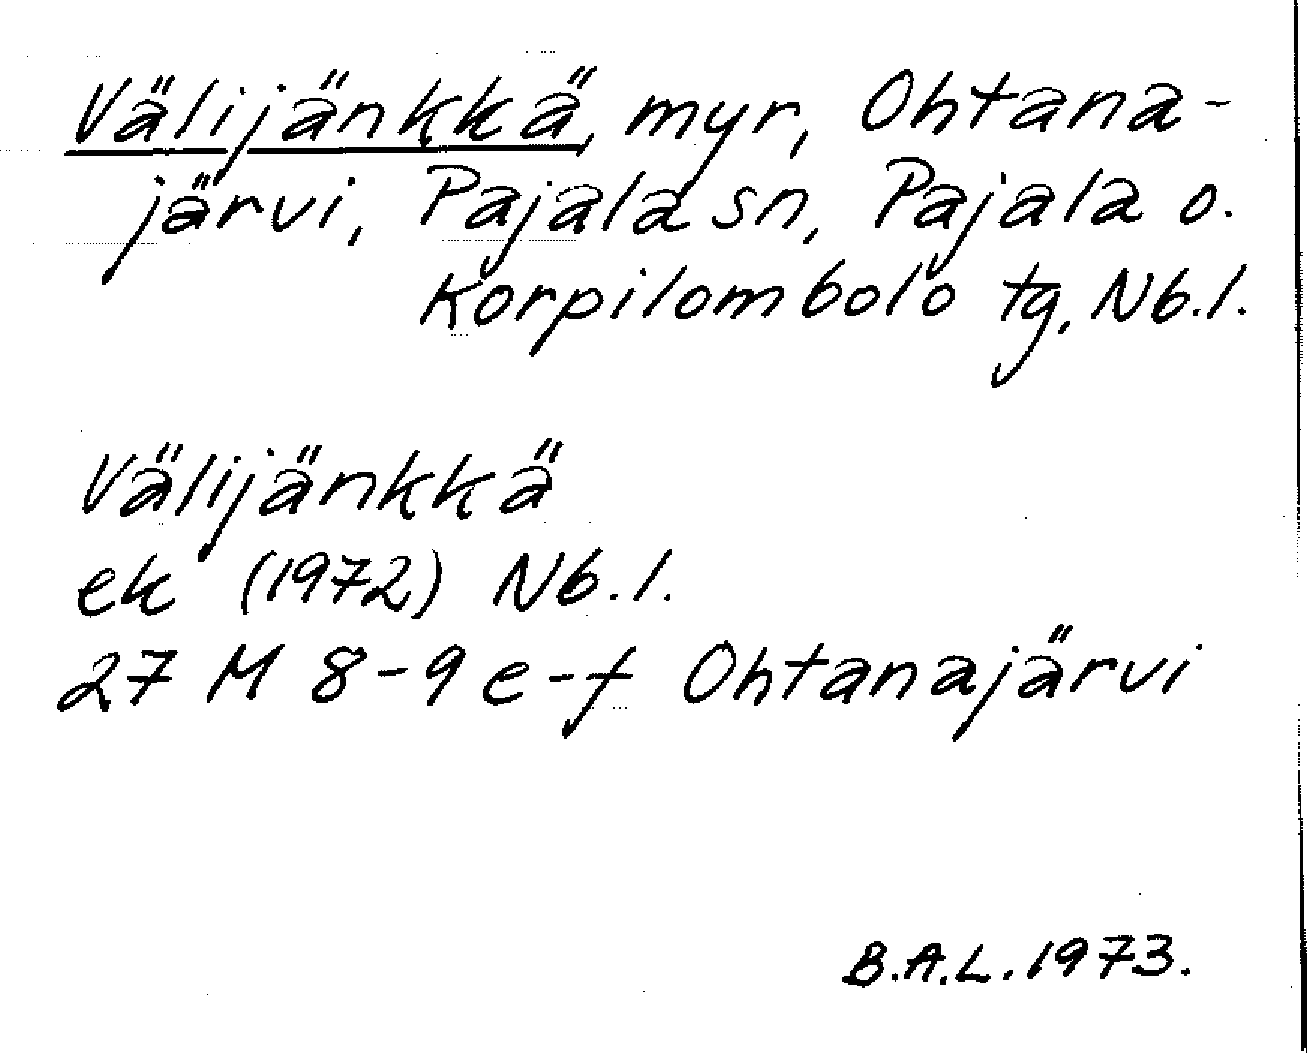 Välijänkkä, myr, Ohtana-
järvi, Pajala sn, Pajala o.
Korpilombolo tg, Nb.l.
Välijänkkä
ek (1972) Nb.l.
27 M 8-9 e-f Ohtanajärvi
B.A.L. 1973.